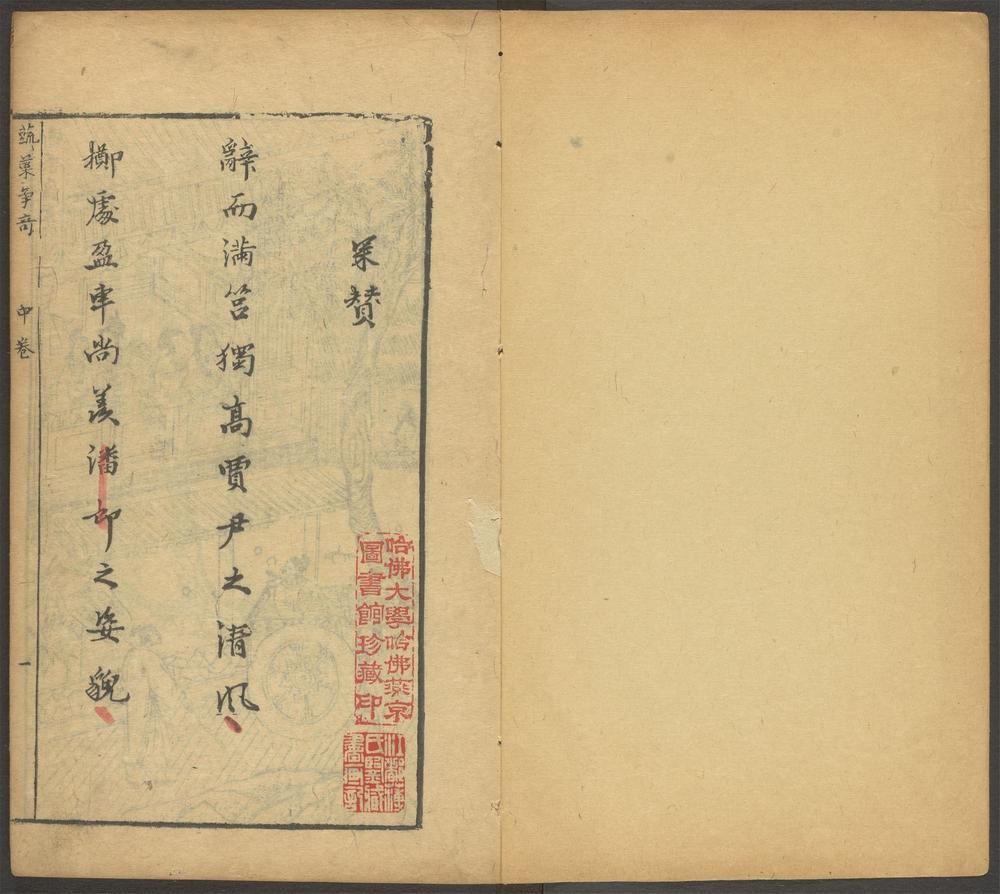 菓賛
辭而滿筥獨高賈尹之清風
擲處盈車尚羨潘郎之姿貌
蔬菓争奇 中卷 一
哈佛大學哈佛燕京
圖書館珍藏印